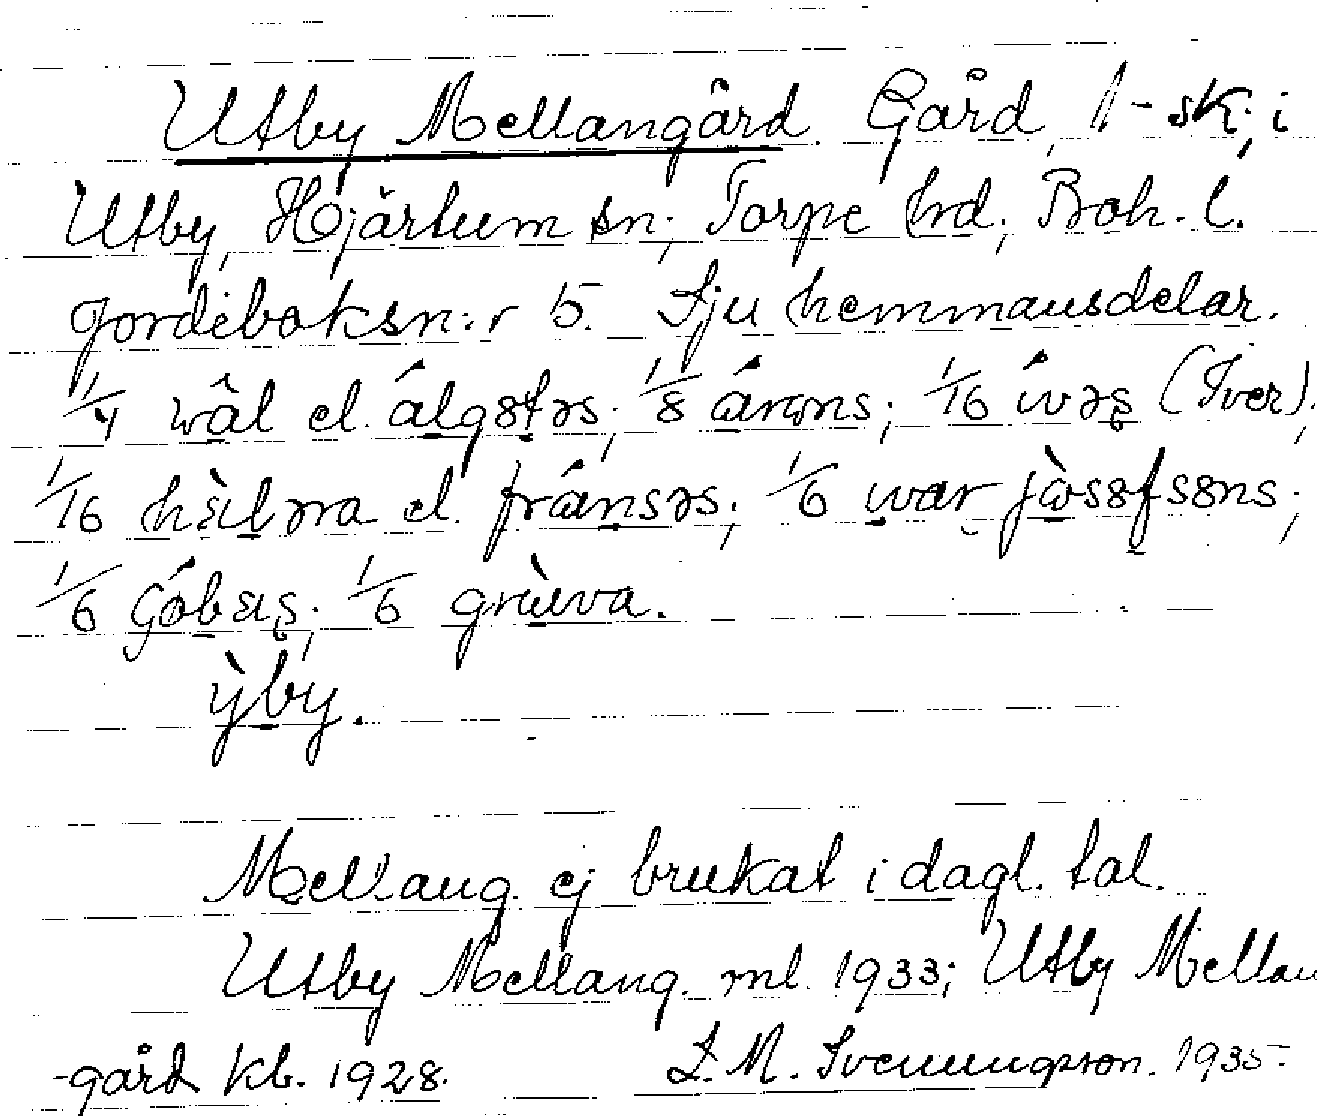 Utby Mellangård. Gård, 1-sk; i
Utby, Hjärtum sn; Torpe hrd; Boh. l.
Jordeboksn:r 5. Sju hemmansdelar.
1/4 wâl el. álgøtəs; 1/8 árons; 1/16 ívəş (Iver);
1/16 el. fránsəs; 1/6 jòsøfsøns;
1/6 1/6 grùva.
ỳby.
Mellang. ej brukat i dagl. tal.
Utby Mellang. ml. 1933; Utby Mellan
-gård kb. 1928. S. M. Svenungsson. 1935.